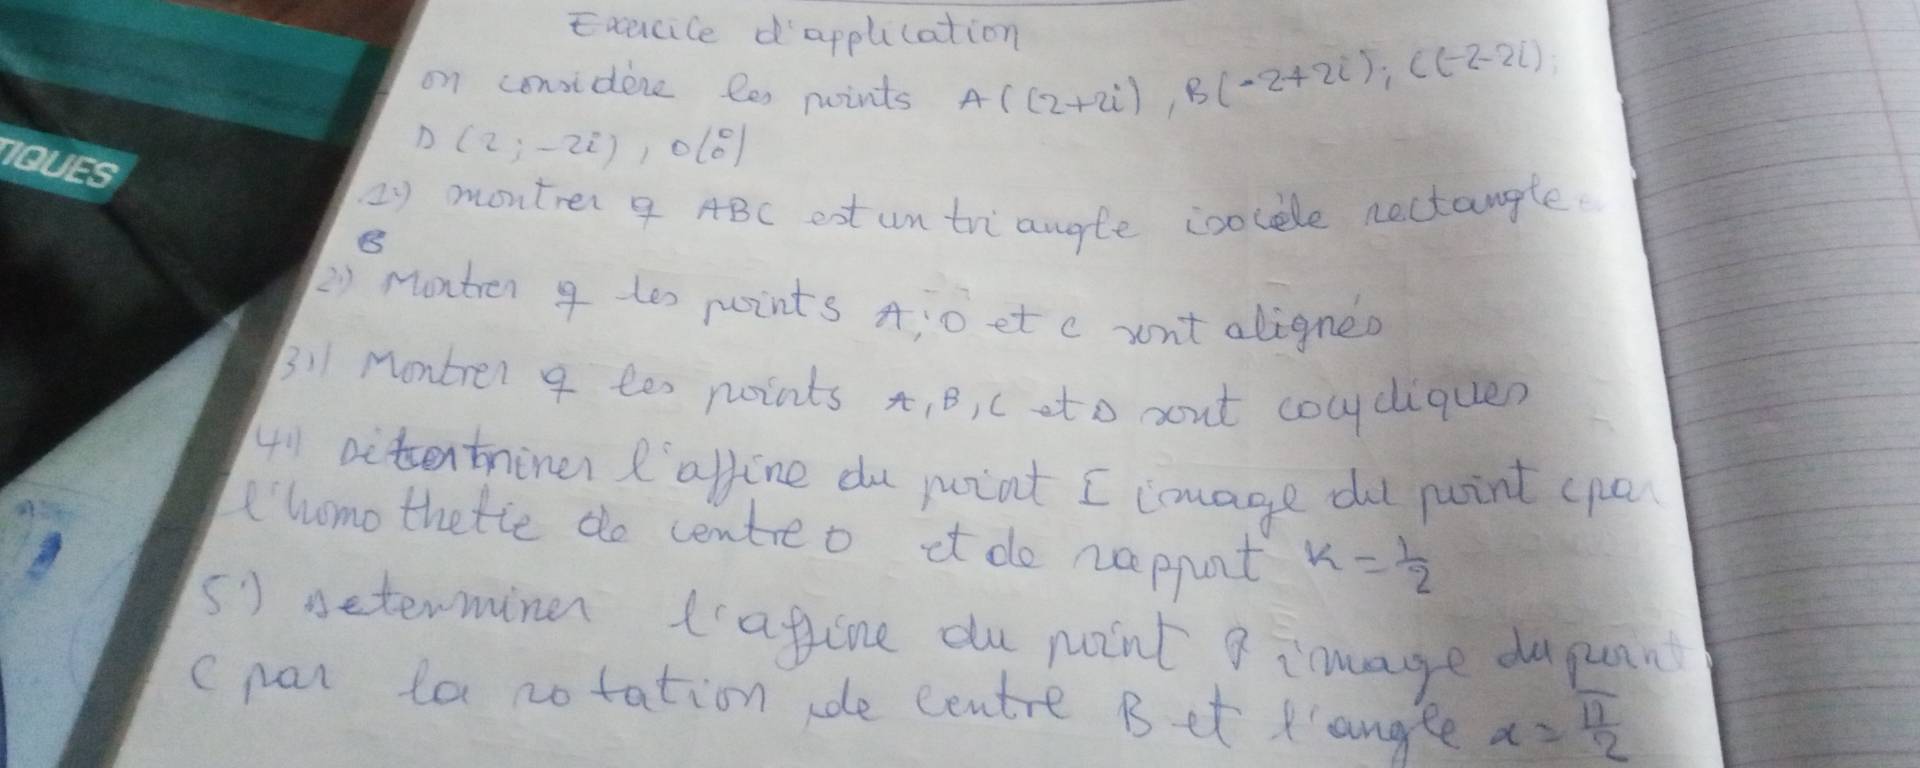 Exercice d'application
on considère les points A((2+2i), B(-2+2i); C(-2-2i);
D(2;-2i), O(0 0)
1°) montrer q ABC est un triangle isocèle rectangle
B
2°) Montrer q les points A; O et C sont alignés
3°) Montrer q les points A, B, C et D sont cocycliques
4°) Déterminer l'affine du point I image du point C par
l'homothetie de centre O et de rapport K = 1/2
5°) determiner l'affine du point image du point
C par la rotation de centre B et l'angle α = π/2
TIQUES